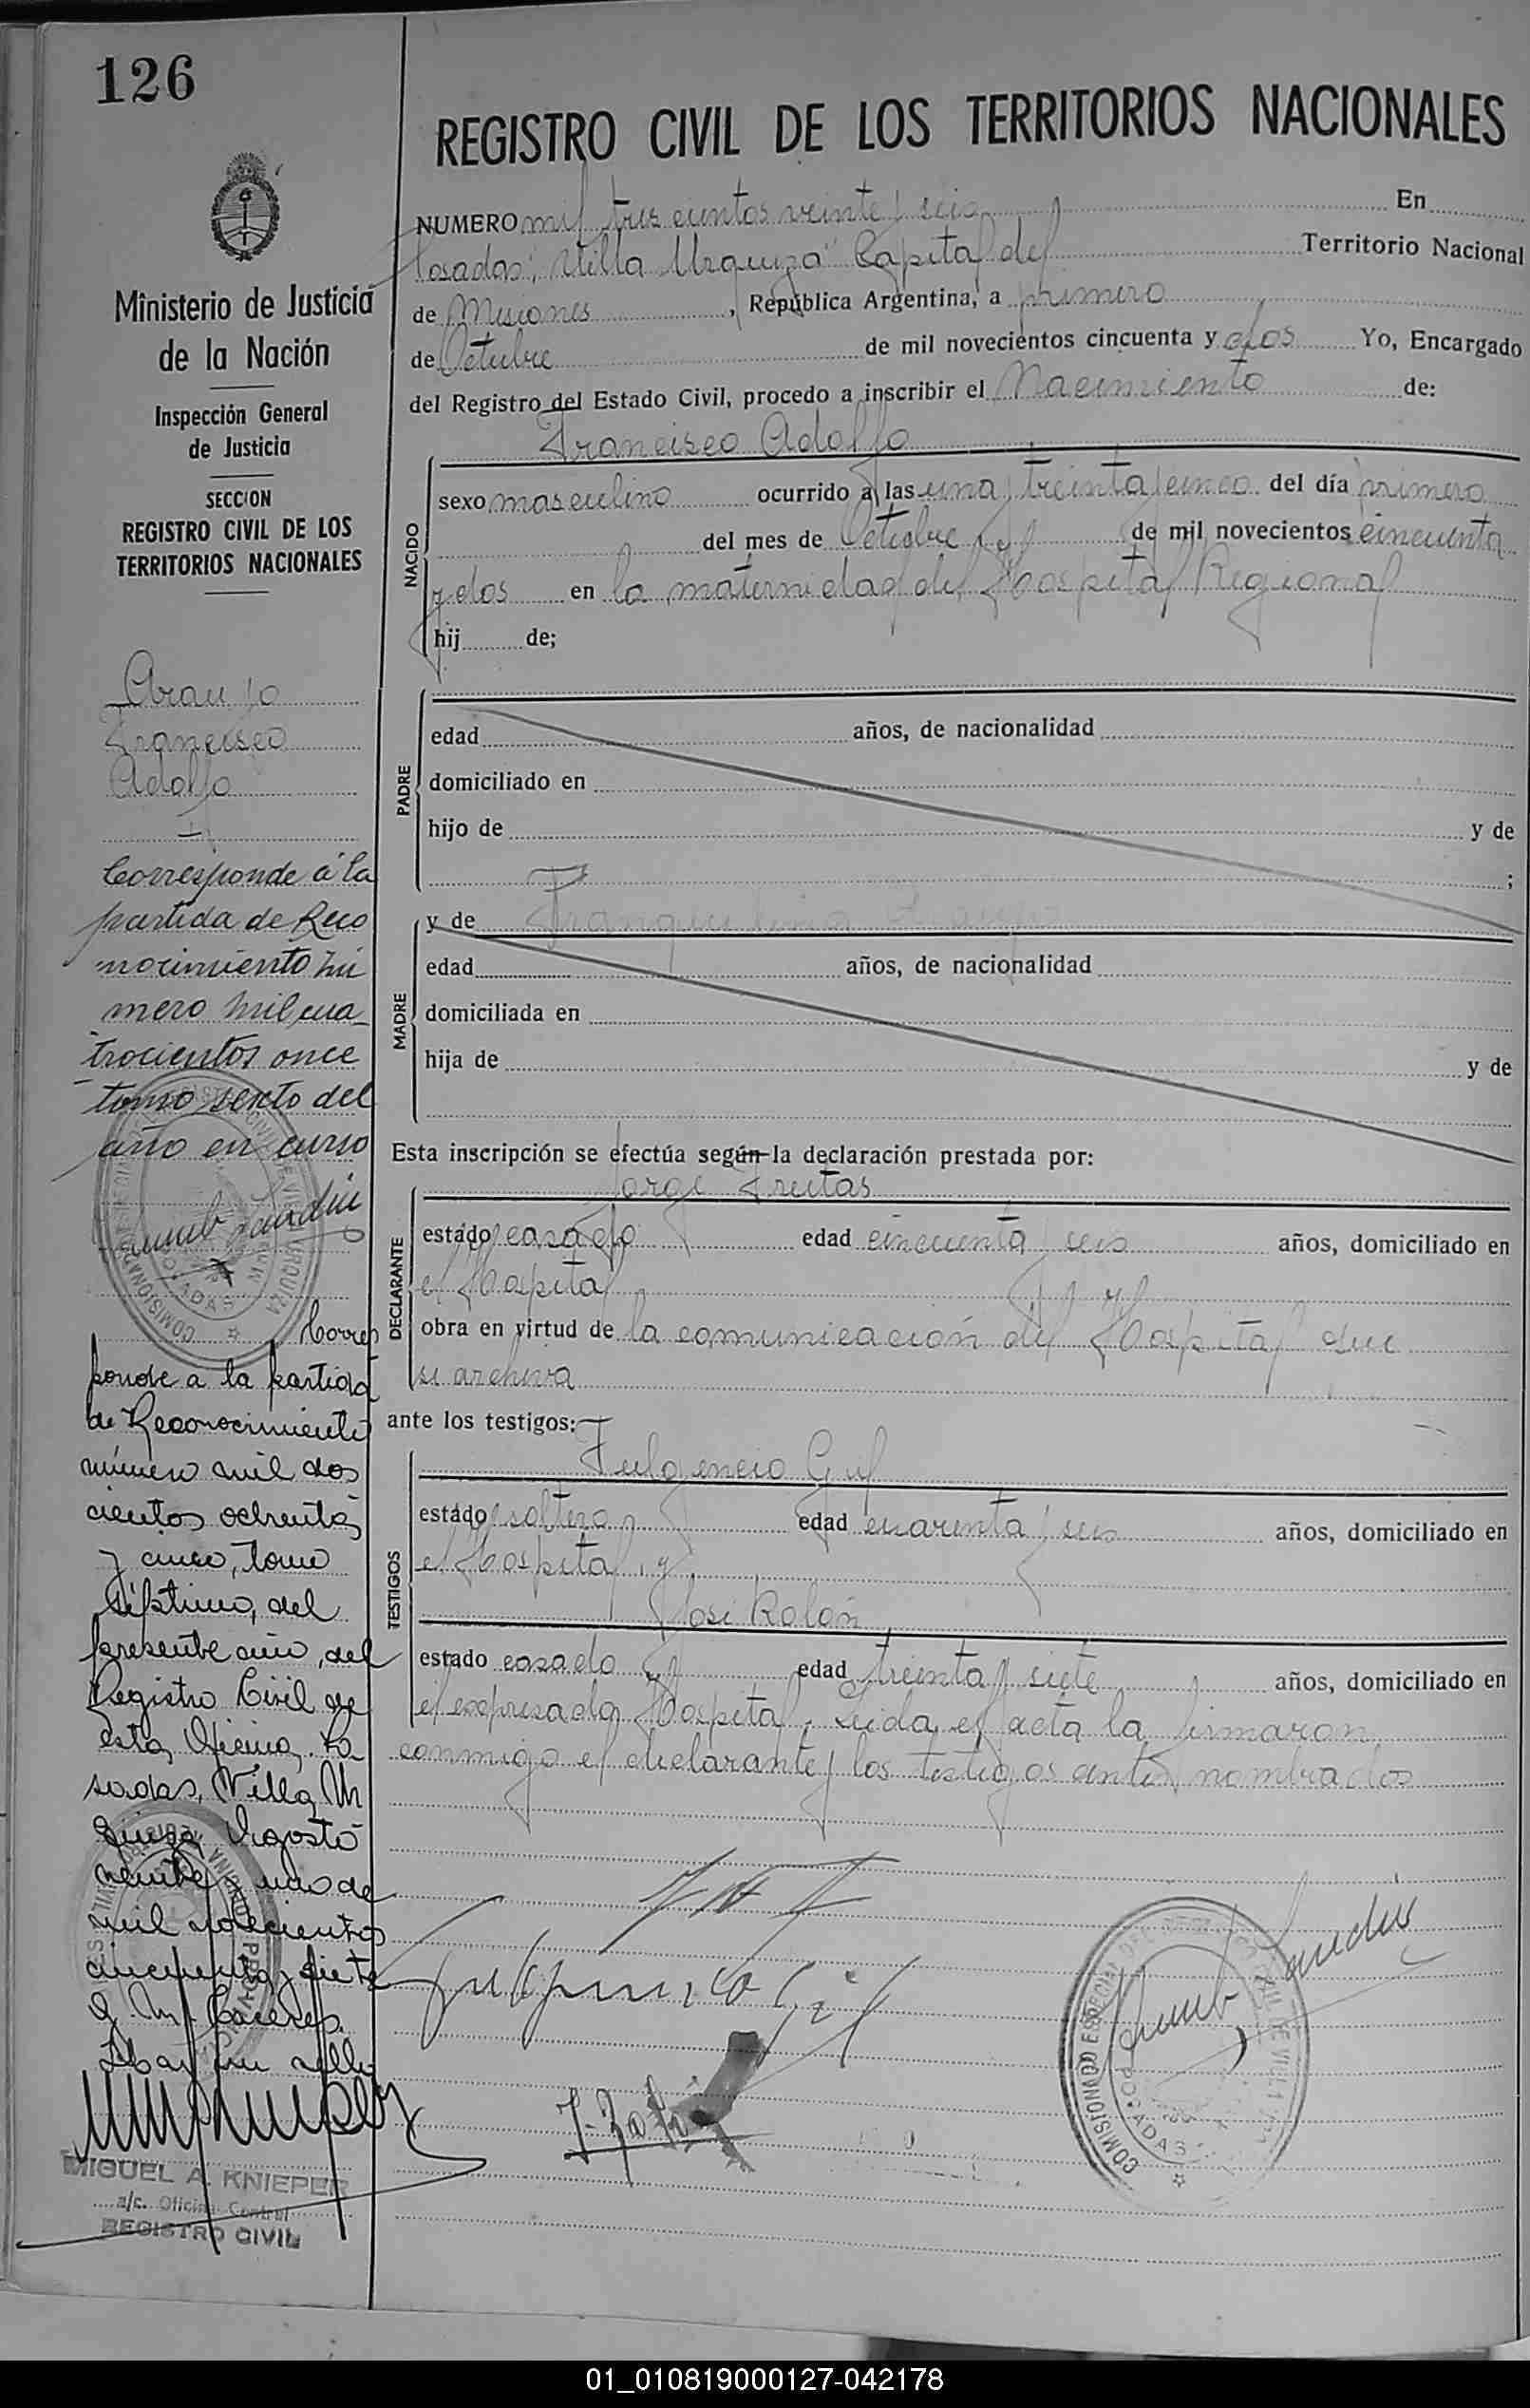 126
REGISTRO CIVIL DE LOS TERRITORIOS NACIONALES
Ministerio de Justicia
de la Nación
Inspección General
de Justicia
SECCION
REGISTRO CIVIL DE LOS
TERRITORIOS NACIONALES
Araujo
Francisco
Adolfo
Corresponde á la
partida de Reco
nocimiento nú
mero mil cua
trocientos once
tomo sexto del
año en curso
Corres
ponde a la partida
de Reconocimiento
número mil dos
cientos ochenta
y cinco, tomo
séptimo, del
presente año, del
Registro Civil de
esta Oficina. Po
sadas, Villa Ur
quiza, Agosto
veinte y uno de
mil novecientos
cincuenta y siete
Hay un sello
MIGUEL A. KNIEPER
a/c. Oficina Central
REGISTRO CIVIL
NUMERO mil trescientos veinte y seis En
Posadas, "Villa Urquiza" Capital del Territorio Nacional
de Misiones, República Argentina, a primero
de Octubre de mil novecientos cincuenta y dos Yo, Encargado
del Registro del Estado Civil, procedo a inscribir el Nacimiento de:
Francisco Adolfo
NACIDO
sexo masculino ocurrido a las una y treinta y cinco del día primero
del mes de Octubre de mil novecientos cincuenta
y dos en la maternidad del Hospital Regional
hij de;
PADRE
edad años, de nacionalidad
domiciliado en
hijo de y de
;
MADRE
y de
edad años, de nacionalidad
domiciliada en
hija de y de
Esta inscripción se efectúa según la declaración prestada por:
Jorge Freitas
DECLARANTE
estado casado edad cincuenta y seis años, domiciliado en
el Hospital
obra en virtud de la comunicación del Hospital que
se archiva
ante los testigos:
Fulgencio Gil
TESTIGOS
estado soltero edad cuarenta y seis años, domiciliado en
el Hospital, y
José Rolón
estado casado edad treinta y siete años, domiciliado en
el expresado Hospital. Leida el acta la firmaron
conmigo el declarante y los testigos antes nombrados
Fulgencio Gil
01_010819000127-042178